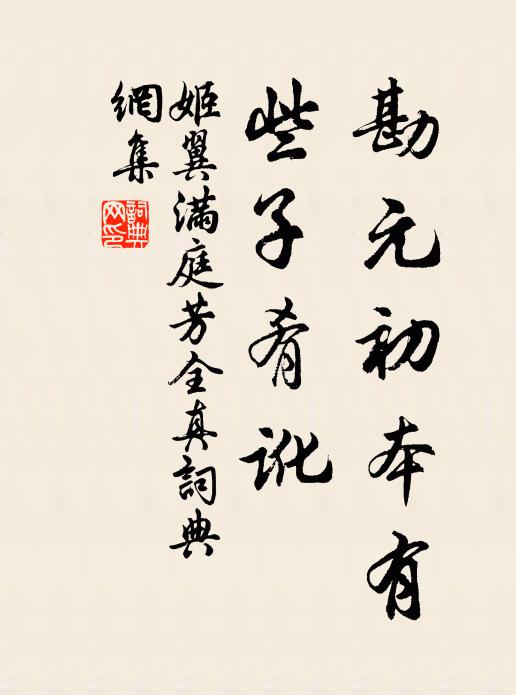 勘元初本有
些子肴讹
姬翼满庭芳全真詞典
網集
詞典網印